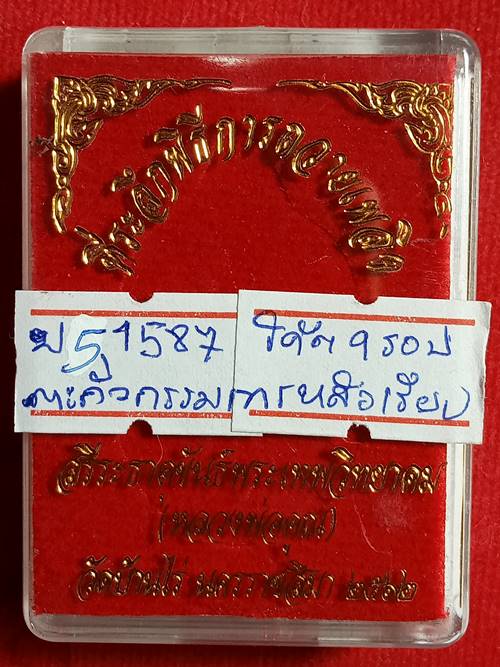 ที่ระลึกพิธีการถวายเพลิง
ป 5 1587 โค้ด ๑ รอบ
ตะกั่วกรรมการ
สรีระธาตุขันธ์พระเทพวิทยาคม
(หลวงพ่อคูณ)
วัดบ้านไร่ นครราชสีมา ๒๕๖๒